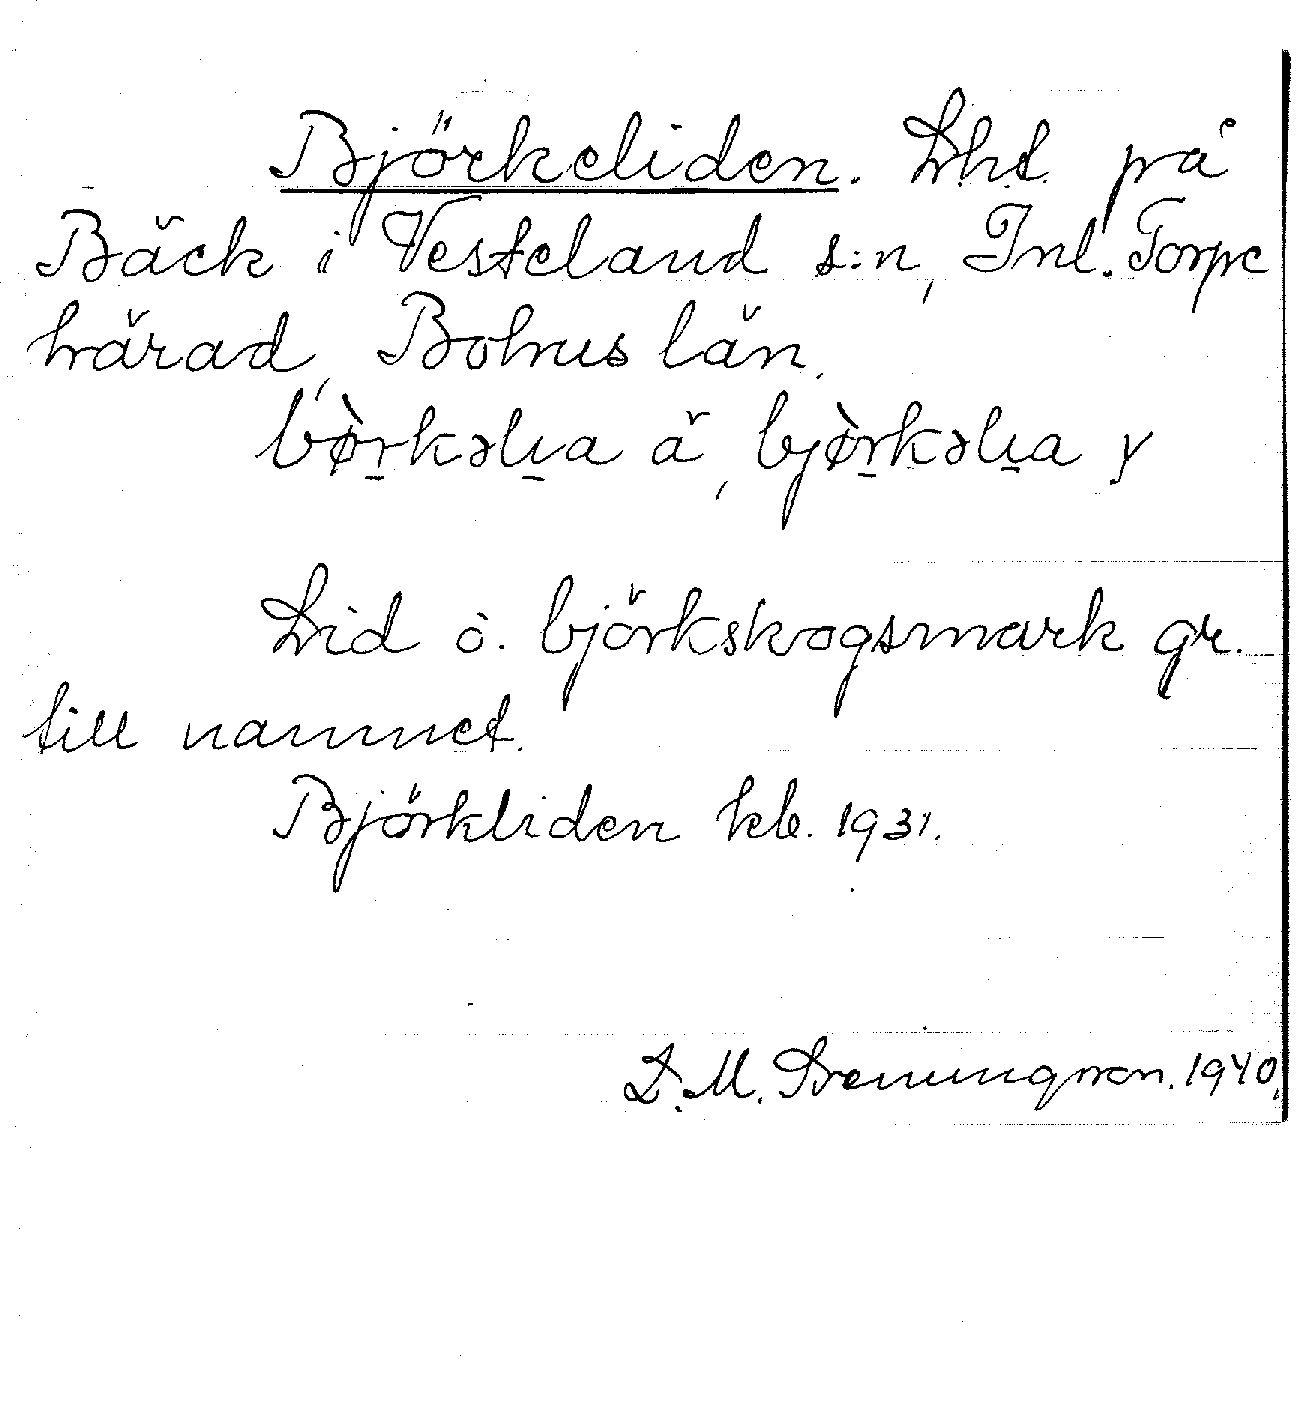 Björkeliden. Lht. på
Bäck i Vesteland s:n, Inl. Torpe
härad, Bohus län.
bø̀rkəlıa ä, bjø̀rkəlıa y
Lid o. björkskogsmark gr.
till namnet.
Björkliden kb. 1931.
D. M. 1940.